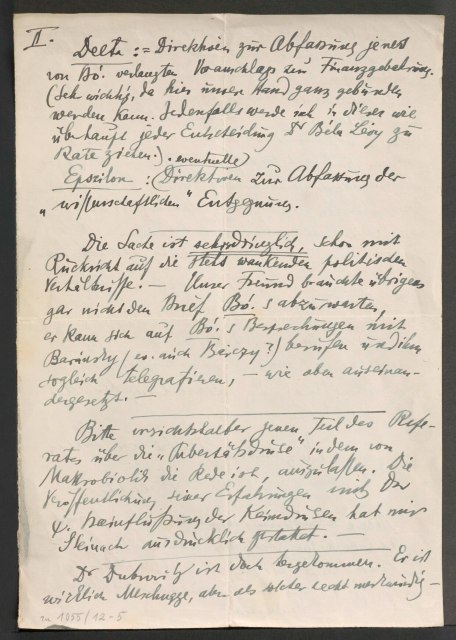 II.
Delta := Direktiven zur Abfassung jenes
von Bó. verlangten Voranschlags zur Finanzgebahrung.
(Sehr wichtig, da hier unsere Hand ganz gebunden
werden kann. Jedenfalls werde ich in dieser wie
überhaupt jeder Entscheidung Dr Béla Lévy zu
Rate ziehen.)
eventuelle
Epsilon : (Direktiven zur Abfassung der
"wissenschaftlichen" Entgegnung.
Die Sache ist sehr dringlich, schon mit
Rücksicht auf die stets wankenden politischen
Verhältnisse. — Unser Freund brauchte übrigens
gar nicht den Brief Bó.s abzuwarten,
er kann sich auf Bó.s Besprechungen mit
Barinsky (ev. auch ?) berufen und ihm
sogleich telegrafieren, — wie oben auseinan-
dergesetzt. —
Bitte vorsichtshalber jenen Teil des Refe-
rates über die "Pubertätsdrüse" in dem von
Makrobiotik die Rede ist, auszulassen. Die
Veröffentlichung seiner Erfahrungen mit der
Beeinflussung der Keimdrüsen hat mir
Steinach ausdrücklich gestattet. —
Dr ist doch hergekommen. Er ist
wirklich Meschugge, aber als solcher recht merkwürdig —
1055/12-5